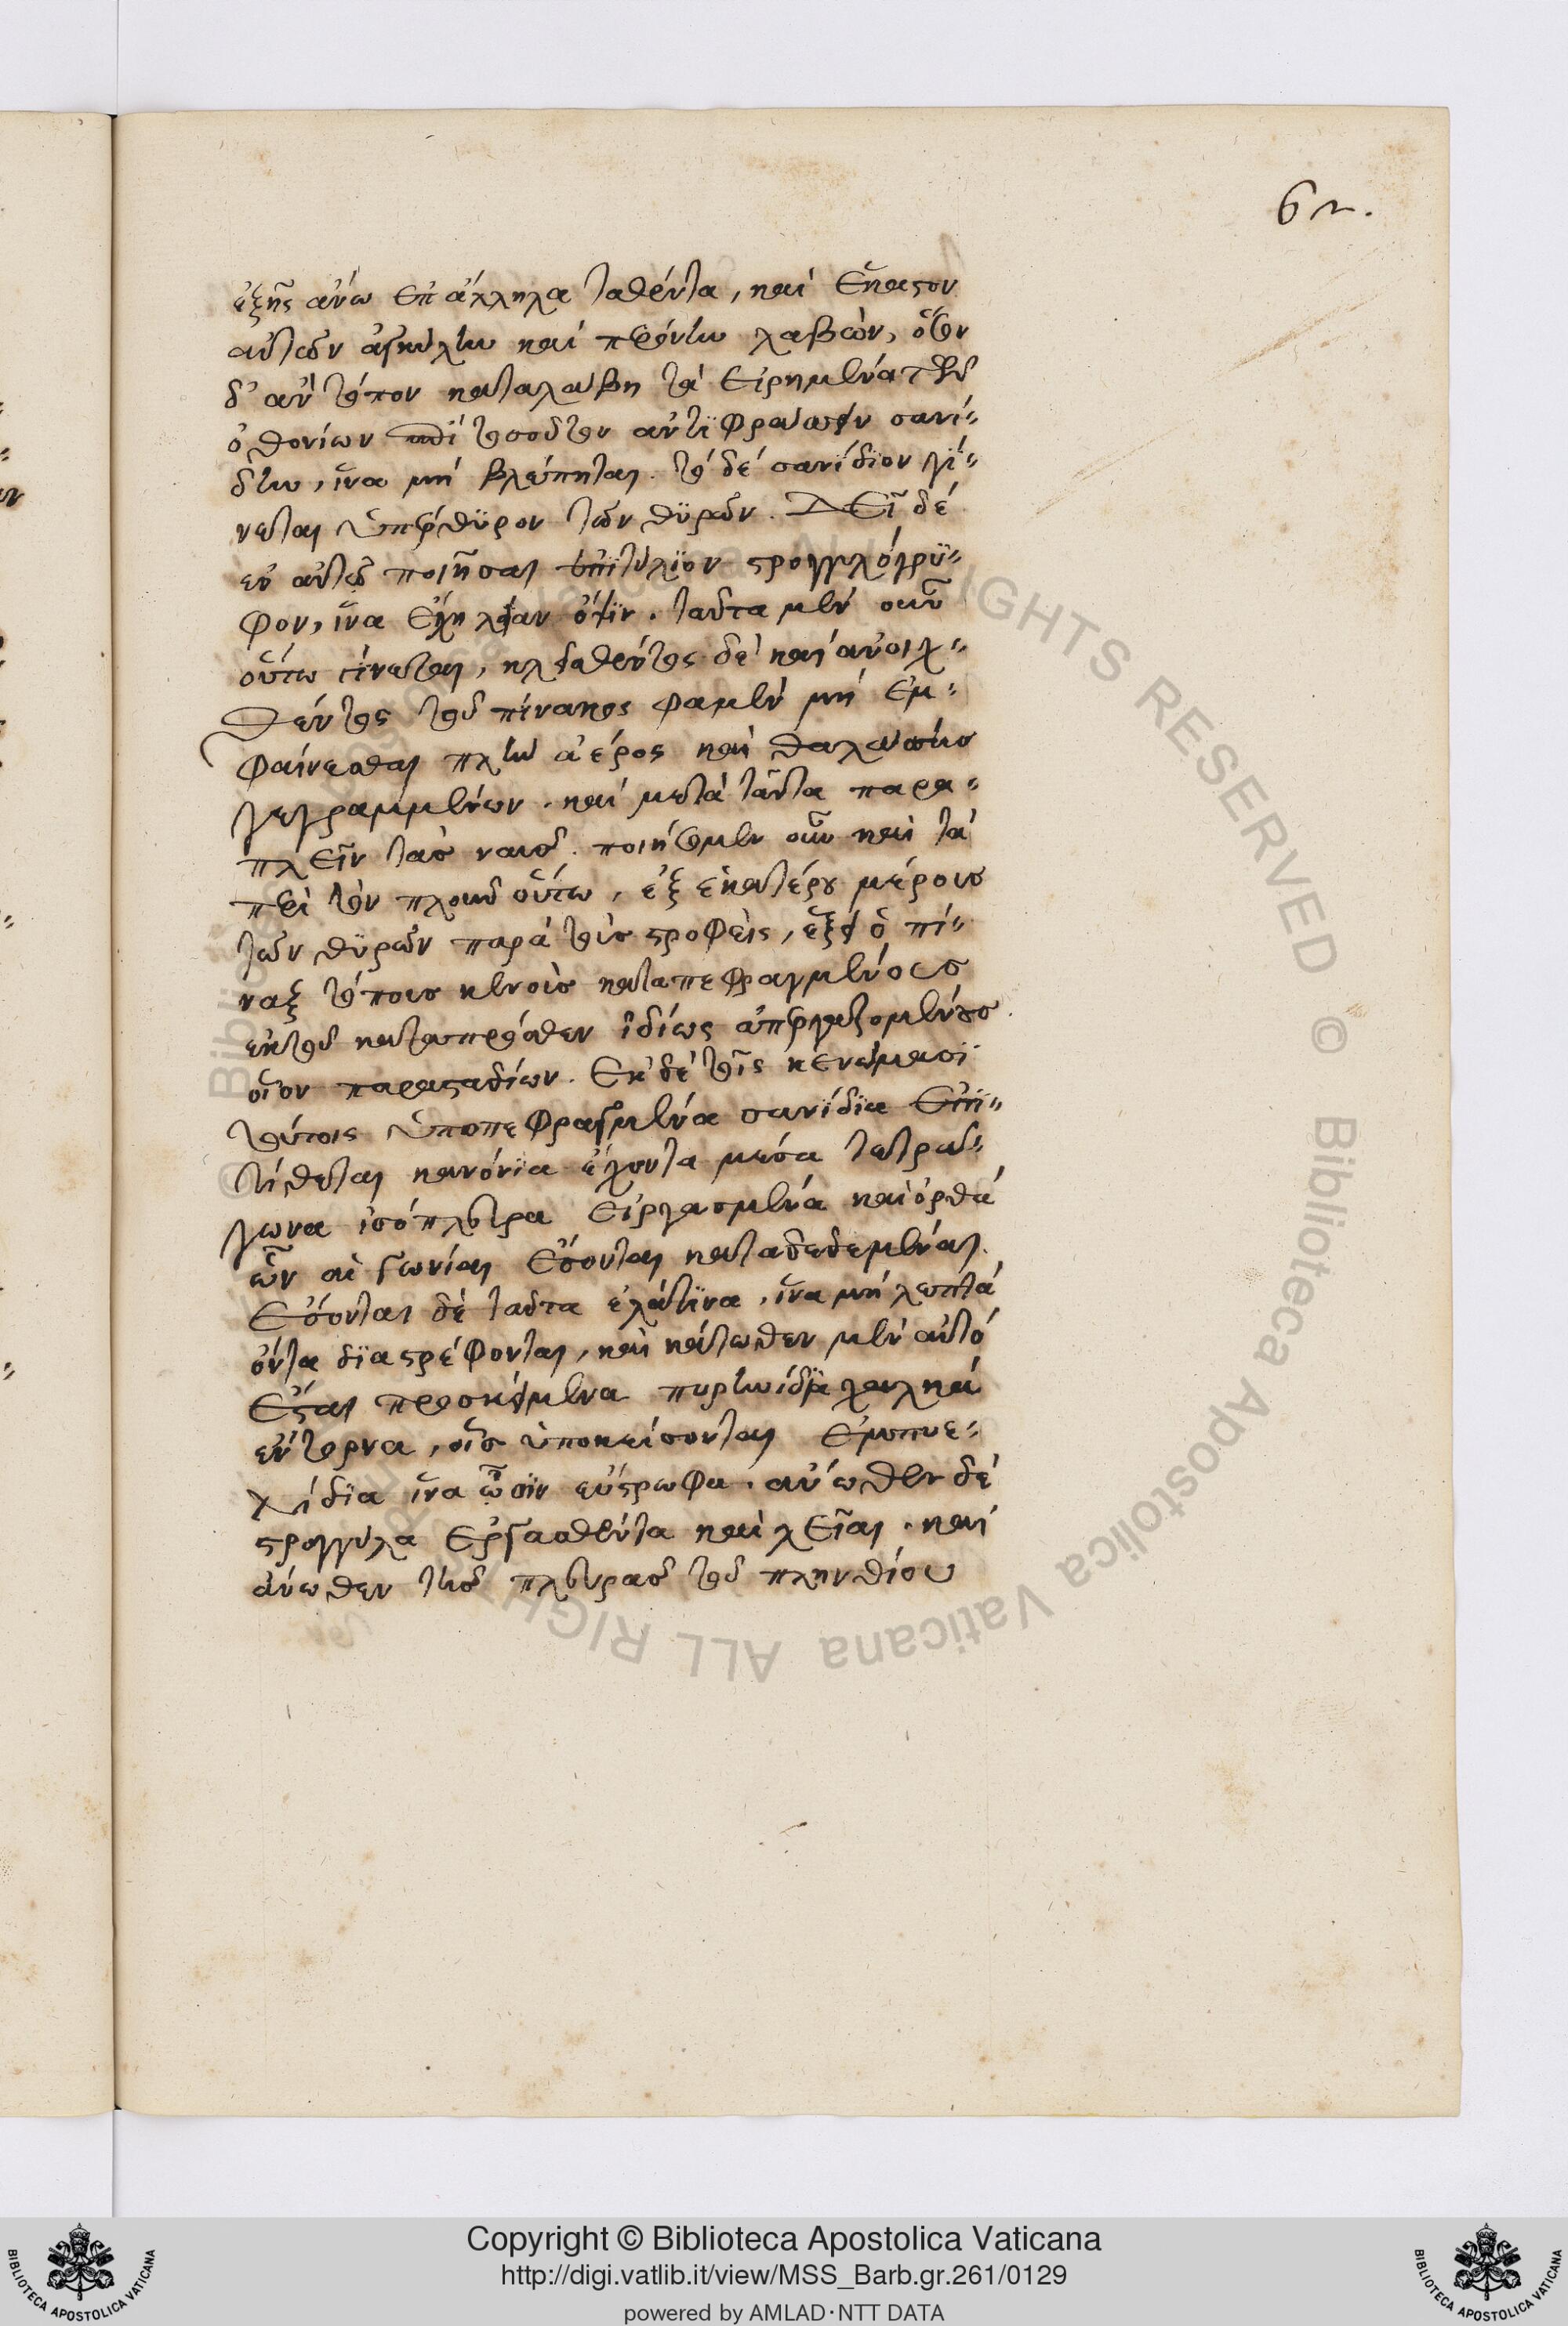 62.
ἑξῆς ἄνω ἐπ ἄλληλα ταθέντα, καὶ ἕκαστον
αὐτῶν ἀγκύλην καὶ περόνην λαβὼν, ὅθεν
δ' ἂν τόπον καταλάβῃ τὰ εἰρημένα τῶν
ὀθονίων ἐπὶ τοσοῦτον ἀντιφράττειν σανί-
δίῳ, ἵνα μὴ βλέπηται. τὸ δὲ σανίδιον γί-
νεται ὑπέρθυρον τῶν θυρῶν. Δεῖ δὲ
ἐν αὐτῷ ποιῆσαι ἐπιτύλιον στρογγυλόγρυ-
φον, ἵνα ἔχῃ λείαν ὄψιν. ταῦτα μὲν οὖν
οὕτω γίνεται, κλεισθέντος δὲ καὶ ἀνοιχ-
θέντος τοῦ πίνακος φαμὲν μὴ ἐμ-
φαίνεσθαι πλὴν ἀέρος καὶ θαλάττης
γεγραμμένων. καὶ μετὰ ταῦτα παρα-
πλεῖν τὰς ναῦς. ποιήσομεν οὖν καὶ τὰ
περὶ τὸν πλοῦν οὕτω, ἐξ ἑκατέρου μέρους
τῶν θυρῶν παρὰ τοὺς στροφεῖς, ἕξει ὁ πί-
ναξ τόπους κενοὺς καταπεφραγμένους
ἐκ τοῦ κατὰ πρόσθεν ἰδίως ἀπεργαζομένους
οἷον παραστάδιων. Ἐκ δὲ τοῖς κενώμασι
τούτοις ὑποπεφραγμένα σανίδια ἐπι-
τίθεται κανόνια ἔχοντα μέσα τετρά-
γωνα ἰσόπλευρα εἰργασμένα καὶ ὀρθὰ
ὧν αἱ γωνίαι ἔσονται καταδεδεμέναι.
Ἔσονται δὲ ταῦτα ἐλάτινα, ἵνα μὴ λεπτὰ
ὄντα διαστρέφονται, καὶ κάτωθεν μὲν αὐτὸ
ἔσται προσκείμενα πυρηνίδια χαλκᾶ
ἔντορνα, οἷς ὑποκείσονται ἐμπυε-
λίδια ἵνα ᾦσιν εὔστρωφα. ἄνωθεν δὲ
στρογγύλα ἐργασθέντα καὶ λεῖαι. καὶ
ἄνωθεν τῆς πλευρᾶς τοῦ πληνθίου
Copyright © Biblioteca Apostolica Vaticana
http://digi.vatlib.it/view/MSS_Barb.gr.261/0129
powered by AMLAD·NTT DATA
BIBLIOTECA APOSTOLICA VATICANA
BIBLIOTECA APOSTOLICA VATICANA
© Biblioteca Apostolica Vaticana ALL RIGHTS RESERVED